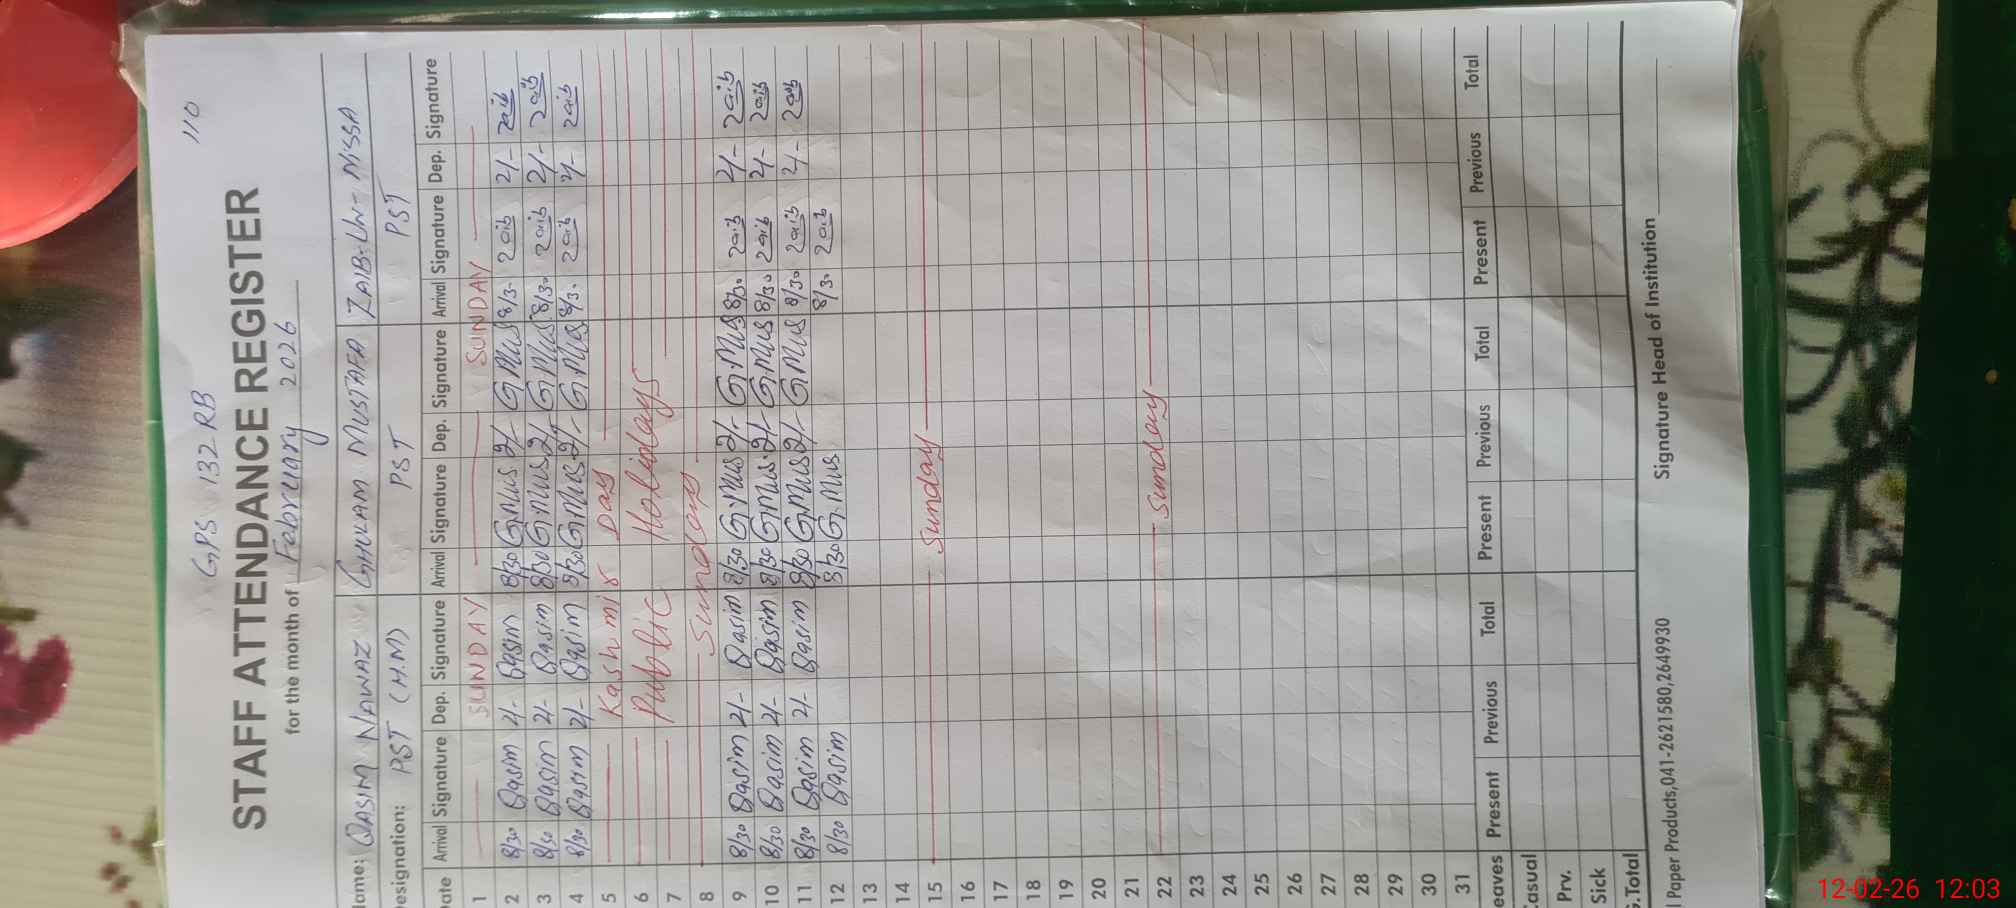 GPS 132 RB
110
STAFF ATTENDANCE REGISTER
for the month of February 2026
lame: QASIM NAWAZ GHULAM MUSTAFA ZAIB-UN-NISSA
esignation: PST (H.M) PST PST
ate Arrival Signature Dep. Signature Arrival Signature Dep. Signature Arrival Signature Dep. Signature
1 SUNDAY SUNDAY
2 8/30 Qasim 2/- Qasim 8/30 G.Mus 2/- G.Mus 8/30 Zaib 2/- Zaib
3 8/30 Qasim 2/- Qasim 8/30 G.Mus 2/- G.Mus 8/30 Zaib 2/- Zaib
4 8/30 Qasim 2/- Qasim 8/30 G.Mus 2/- G.Mus 8/3. Zaib 2/- Zaib
5 Kashmir Day
6 Public Holidays
7
8 Sunday
9 8/30 Qasim 2/- Qasim 8/30 G.Mus 2/- G.Mus 8/30 Zaib 2/- Zaib
10 8/30 Qasim 2/- Qasim 8/30 G.Mus 2/- G.Mus 8/30 Zaib 2/- Zaib
11 8/30 Qasim 2/- Qasim 8/30 G.Mus 2/- G.Mus 8/30 Zaib 2/- Zaib
12 8/30 Qasim 8/30 G.Mus 8/30 Zaib
13
14
15 Sunday
16
17
18
19
20
21
22 Sunday
23
24
25
26
27
28
29
30
31
eaves Present Previous Total Present Previous Total Present Previous Total
Casual
Prv.
Sick
G.Total
l Paper Products,041-2621580,2649930 Signature Head of Institution
12-02-26 12:03